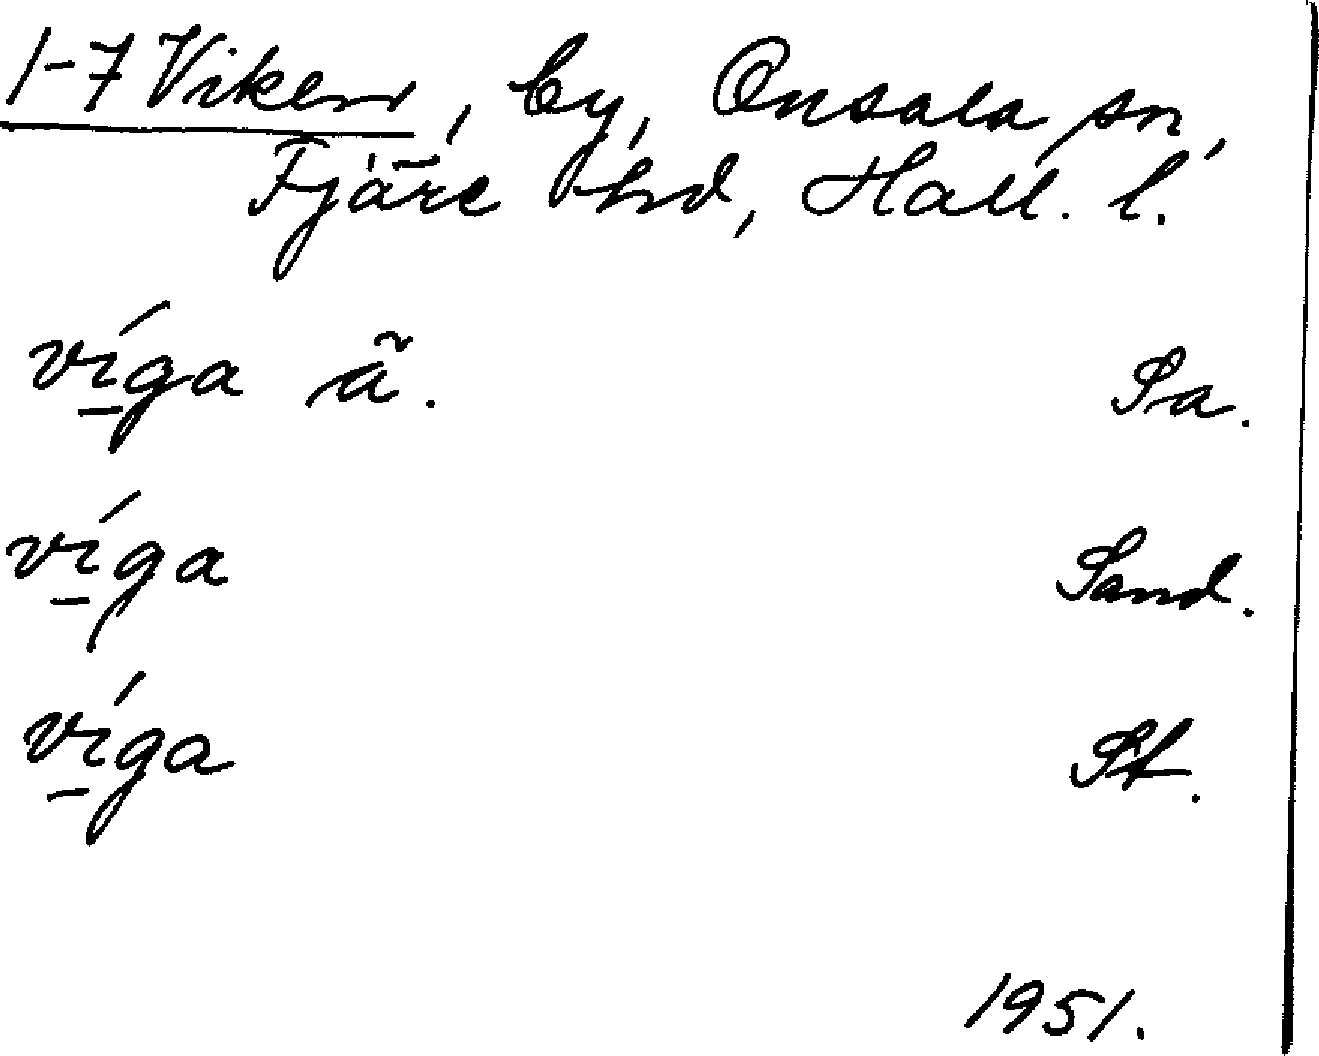 1-7 Viken, by, Onsala sn,
Fjäre hd, Hall. l.
ví̱ga ä̃. Sa.
ví̱ga Sand.
ví̱ga St.
1951.